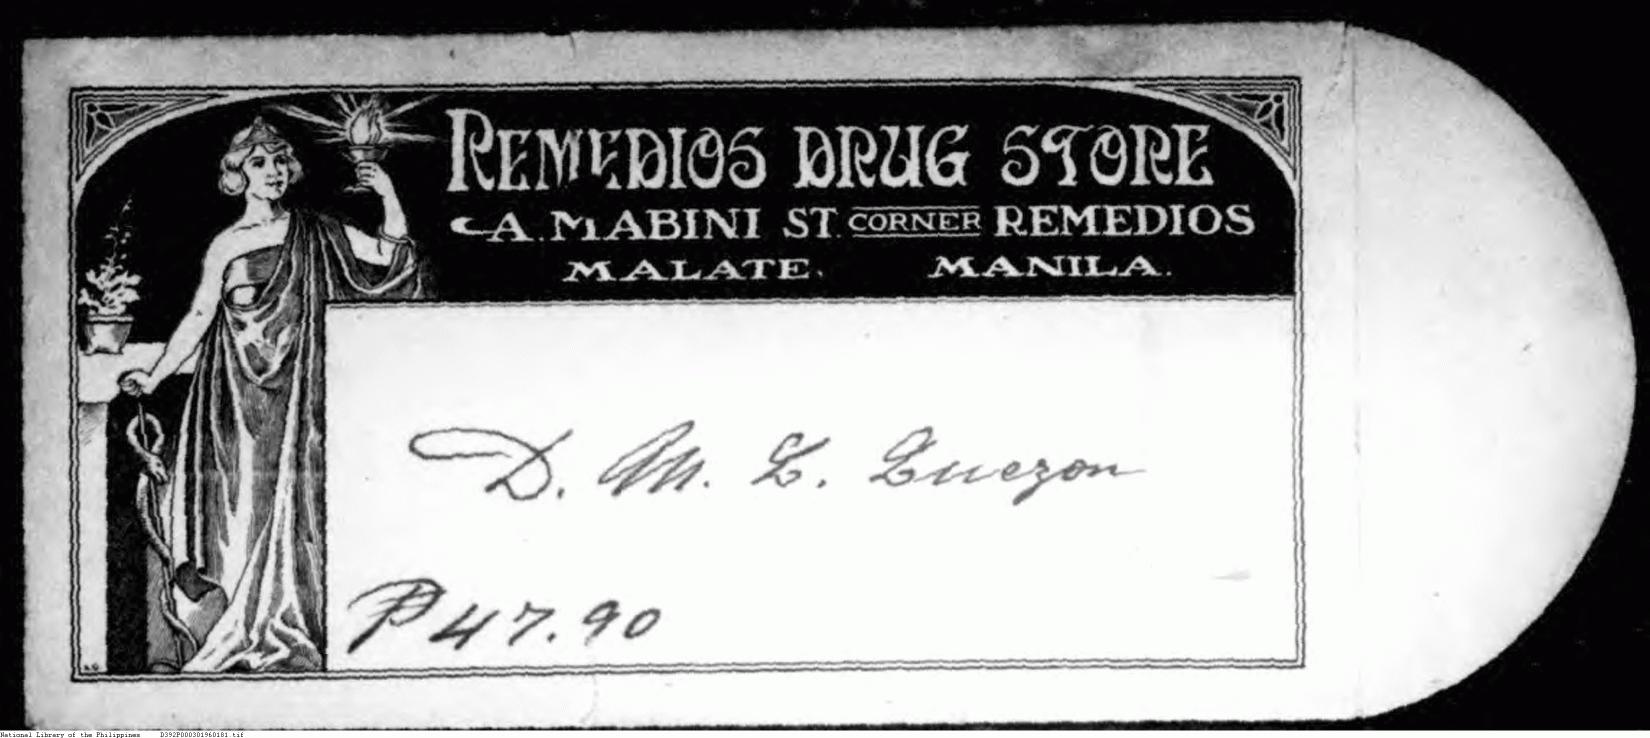 REMEDIOS DRUG STORE
A. MABINI ST. CORNER REMEDIOS
MALATE. MANILA.
D. M. L. Quezon
₱47.90
National Library of the Philippines D392P000301960181.tif